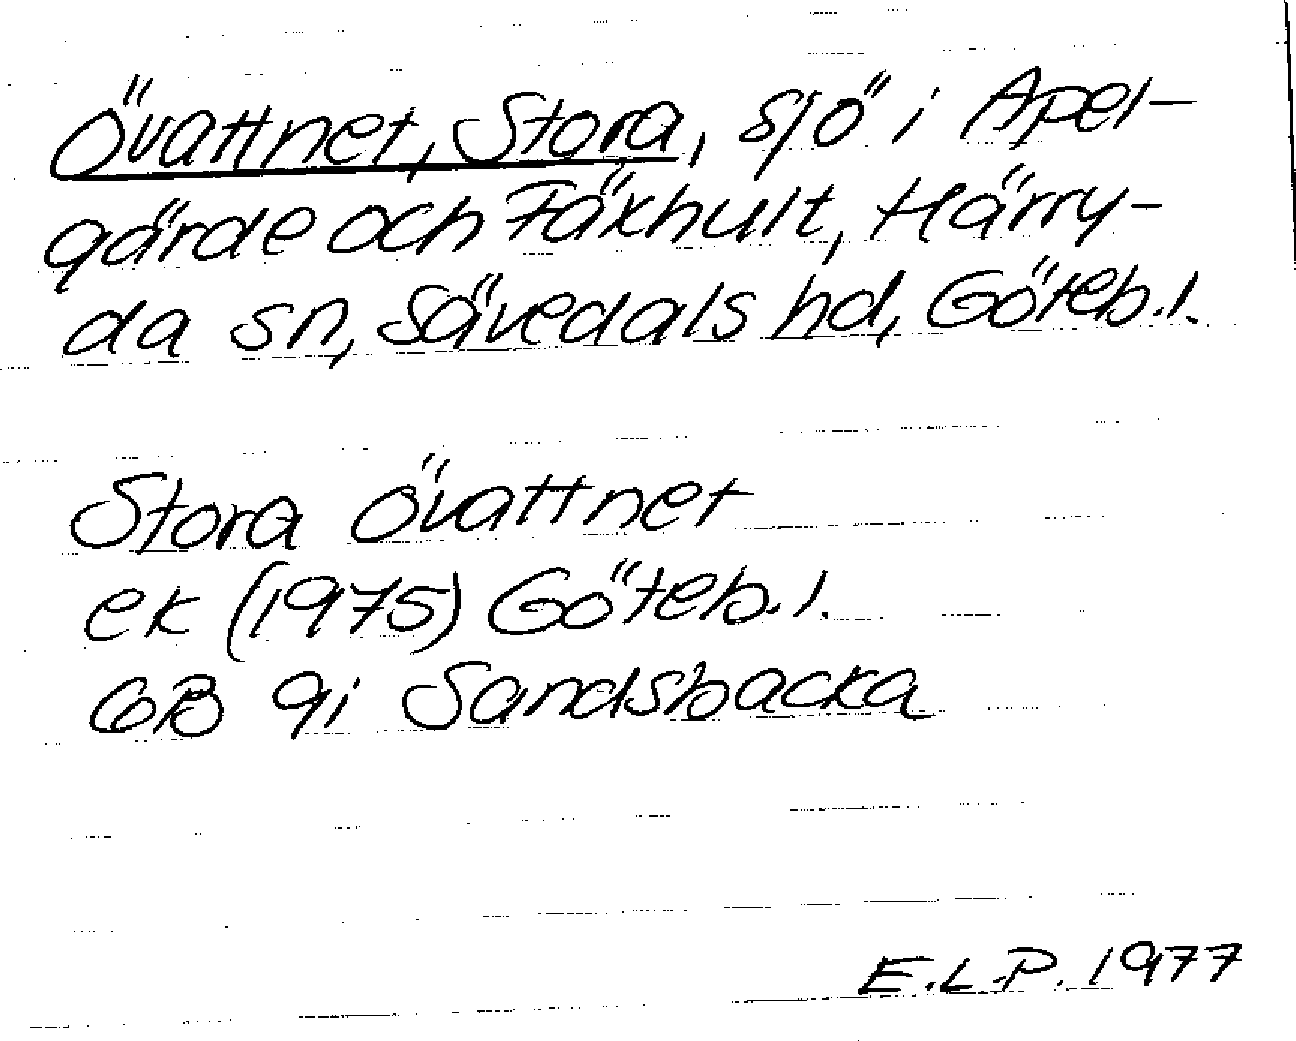 Övattnet, Stora, sjö i Apel-
gärde och Fäxhult, Härry-
da sn, Sävedals hd, Göteb.l.
Stora Övattnet
ek (1975) Göteb.l.
6B 9i Sandsbacka
E.L.P. 1977